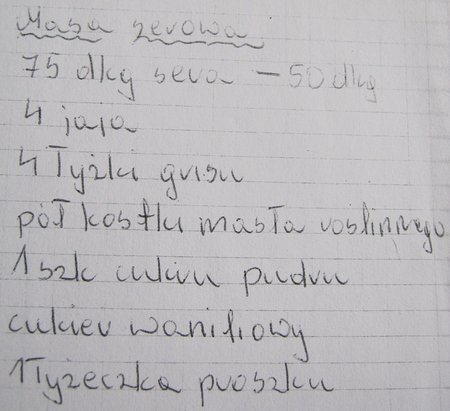 Masa serowa
75 dkg sera - 50 dkg
4 jaja
4 Łyżki grisu
pół kostki masła roślinnego
1 szk cukru pudru
cukier waniliowy
1 Łyżeczka proszku